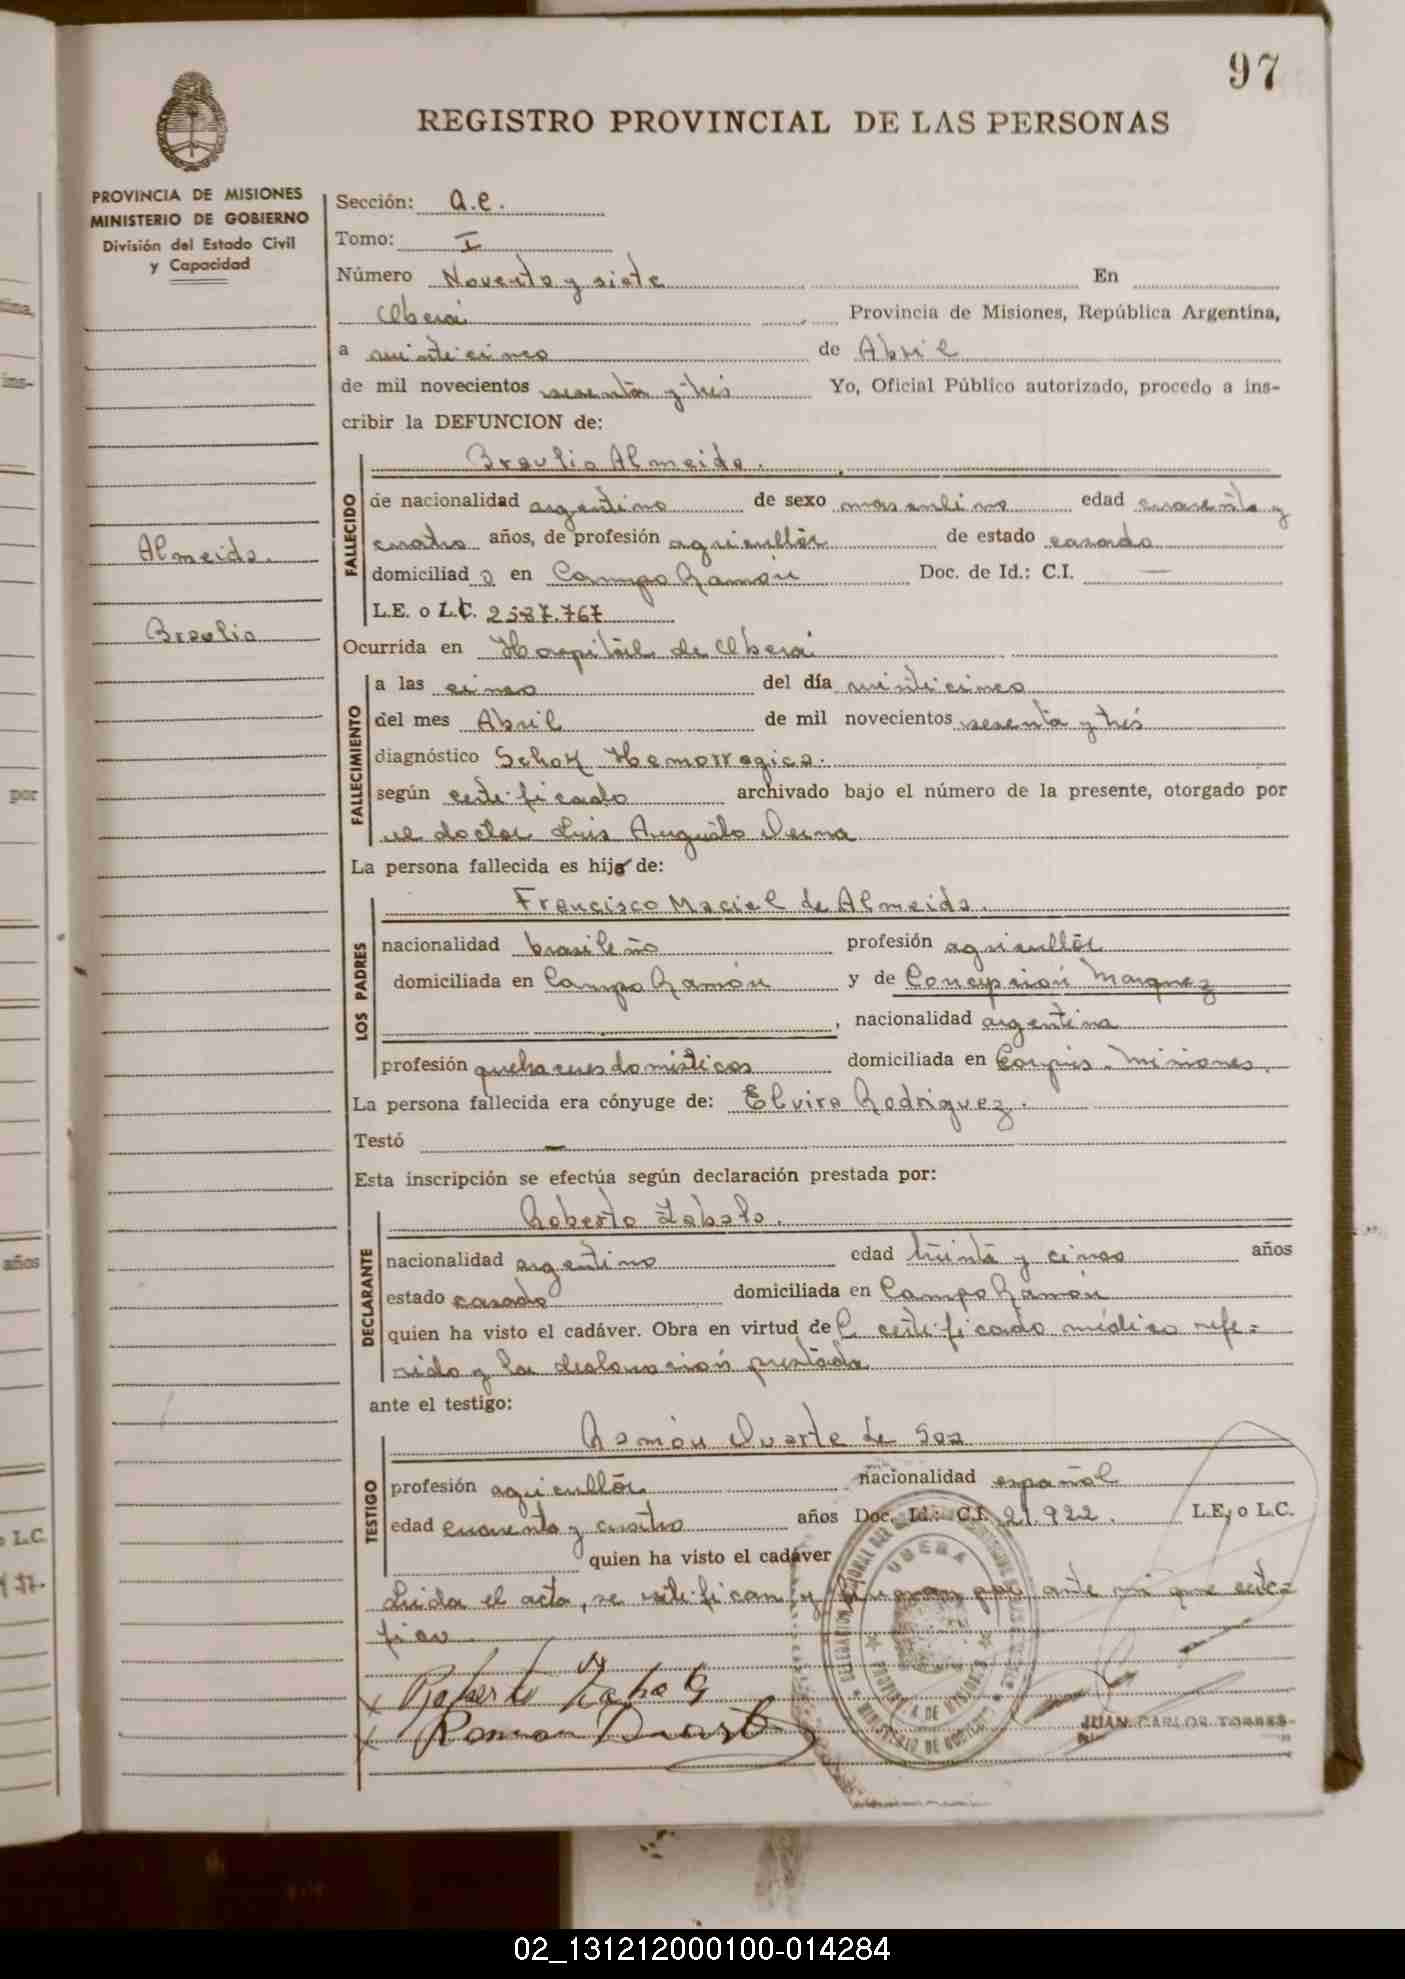 97
REGISTRO PROVINCIAL DE LAS PERSONAS
PROVINCIA DE MISIONES
MINISTERIO DE GOBIERNO
División del Estado Civil
y Capacidad
Almeida.
Braulio
Sección: a.e.
Tomo: I
Número Noventa y siete En
Oberá Provincia de Misiones, República Argentina,
a veinticinco de Abril
de mil novecientos sesenta y tres Yo, Oficial Público autorizado, procedo a ins-
cribir la DEFUNCION de:
Braulio Almeida.
FALLECIDO
de nacionalidad argentino de sexo masculino edad cuarenta y
cuatro años, de profesión agricultor de estado casado
domiciliad o en Campo Ramón Doc. de Id.: C.I. —
L.E. o L.C. 2587.767
Ocurrida en Hospital de Oberá
FALLECIMIENTO
a las cinco del día veinticinco
del mes Abril de mil novecientos sesenta y tres
diagnóstico Schok Hemorragico.
según certificado archivado bajo el número de la presente, otorgado por
el doctor Luis Augusto Derna
La persona fallecida es hijo de:
LOS PADRES
Francisco Maciel de Almeida.
nacionalidad brasileño profesión agricultor
domiciliada en Campo Ramón y de Concepción Marquez
, nacionalidad argentina
profesión quehaceres domésticos domiciliada en Corpus. Misiones.
La persona fallecida era cónyuge de: Elvira Rodriguez.
Testó —
Esta inscripción se efectúa según declaración prestada por:
DECLARANTE
Roberto Zabala.
nacionalidad argentino edad treinta y cinco años
estado casado domiciliada en Campo Ramón
quien ha visto el cadáver. Obra en virtud del certificado médico refe=
rido y la declaración prestada
ante el testigo:
TESTIGO
Ramón Duarte de Soa
profesión agricultor nacionalidad español
edad cuarenta y cuatro años Doc. Id.: C.I. 21.922. L.E. o L.C.
quien ha visto el cadáver
Leida el acta, se ratifican y firman por ante mi que certi=
fico
Roberto Zabala
Ramon Duarte
OBERA
PROVINCIA DE MISIONES
MINISTERIO DE GOBIERNO
JUAN CARLOS TORRES
por
años
o L.C.
02_131212000100-014284